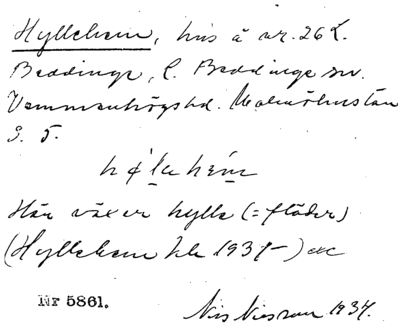 Hyllehem, hus å nr. 26 L.
Beddinge, L. Beddinge sn.
Vemmenhögs hd. Malmöhus län
Här växer hylle (= fläder)
(Hyllehem 1937)
Nr 5861.
Nils Nilsson 1937.